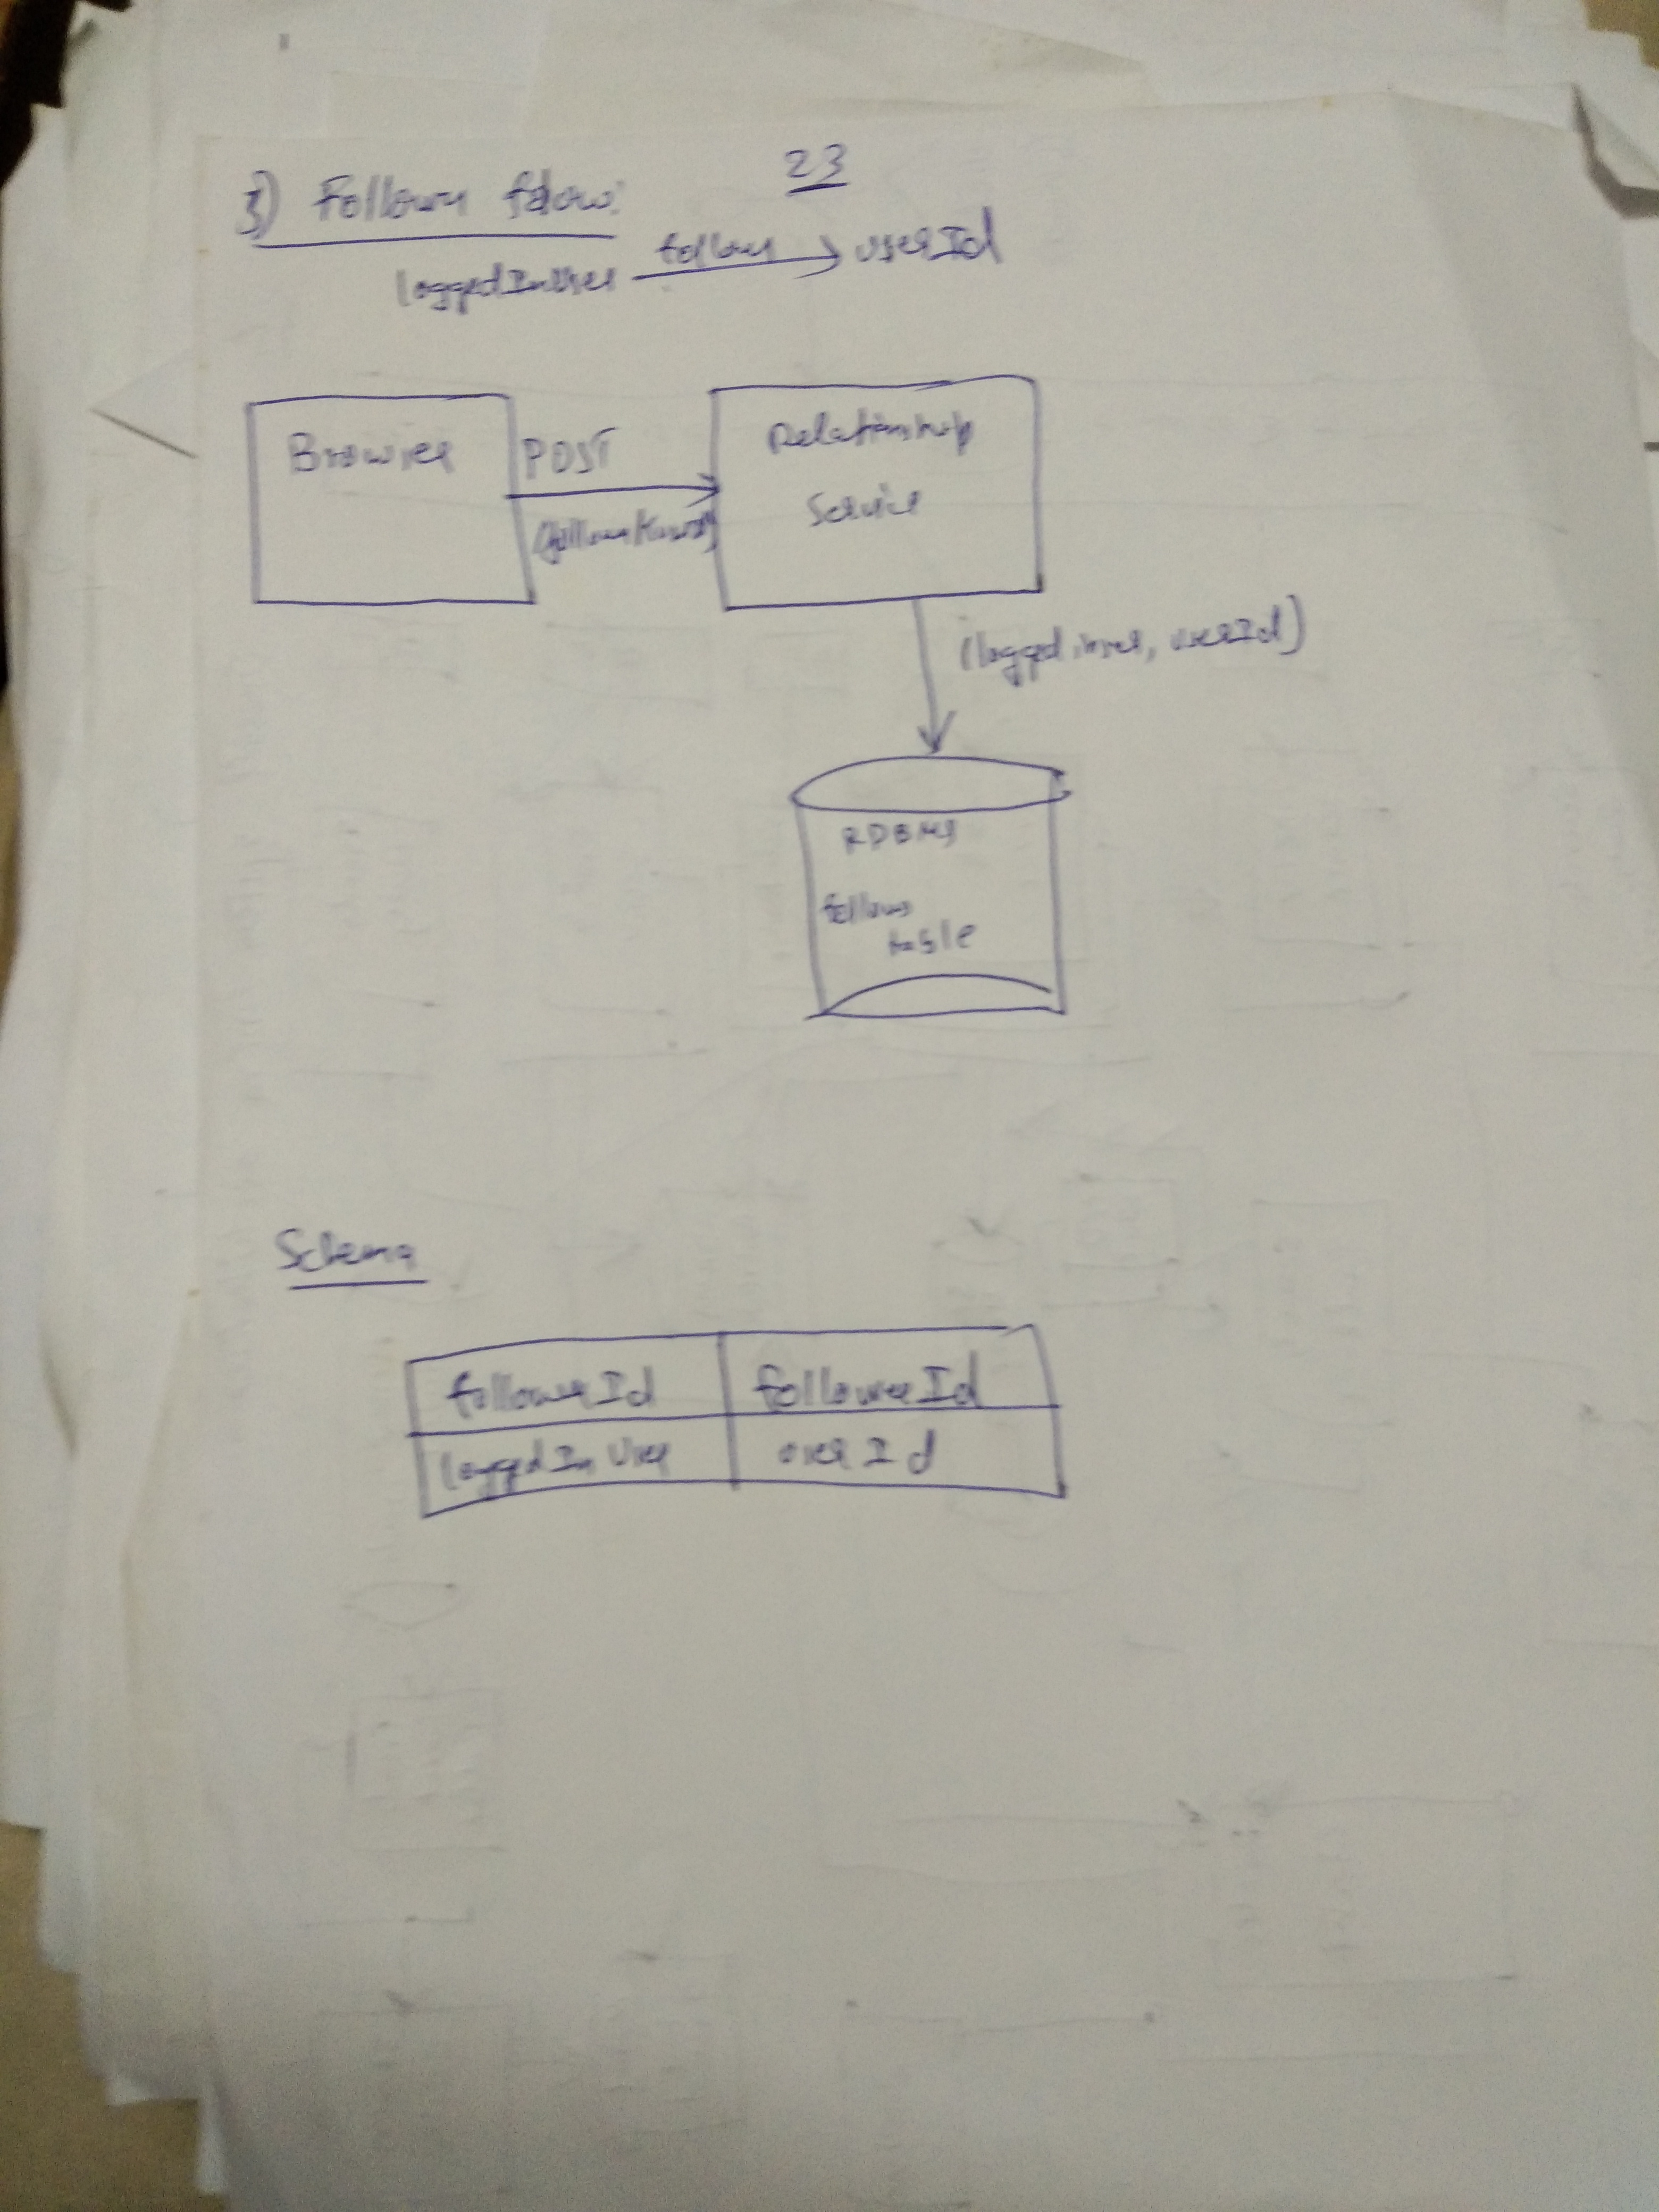 23
3) Follow flow:
loggedInUser follow userId
Browser
POST
Relationship
Service
(loggedinuser, userId)
RDBMS
follow
table
Schema
followerId followeeId
loggedInUser userId